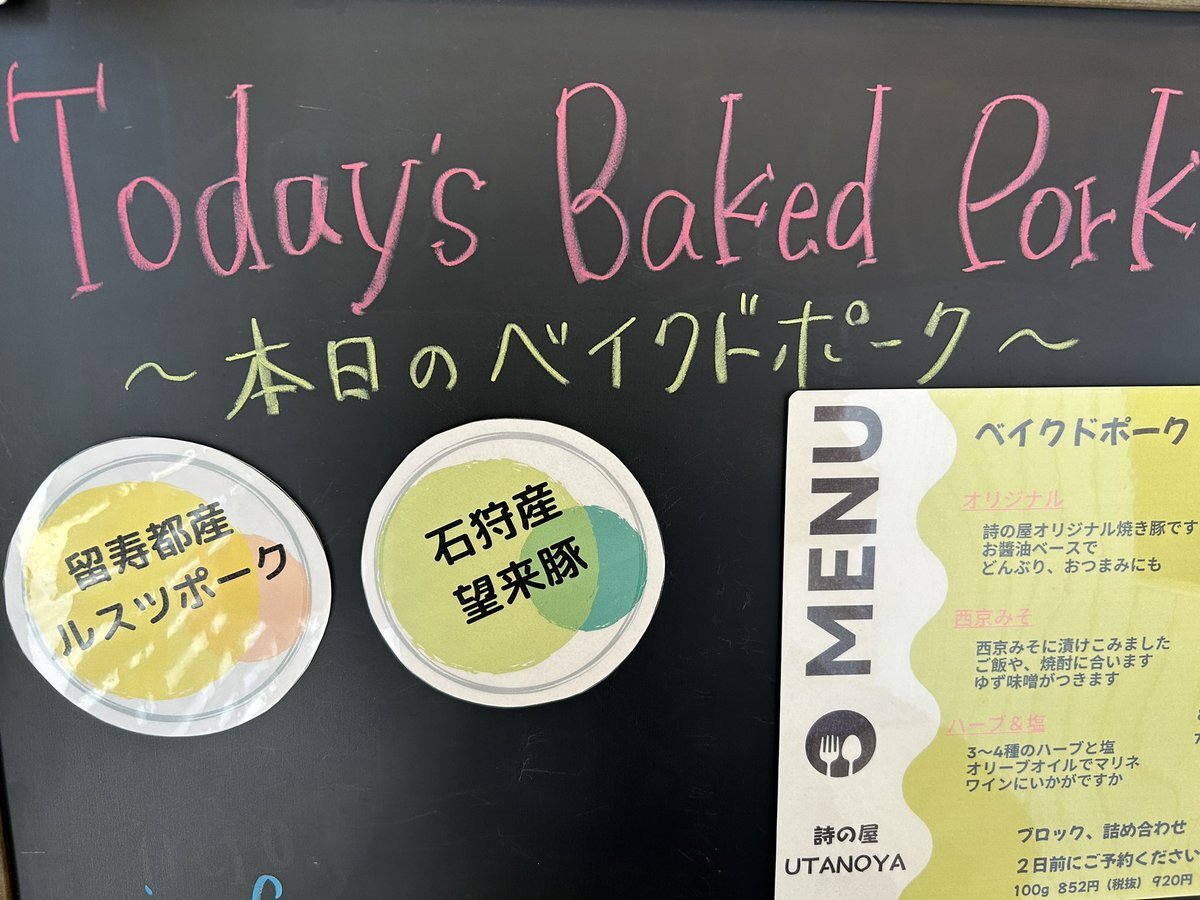 Today's Baked Pork
～本日のベイクドポーク～
留寿都産
ルスツポーク
石狩産
望来豚
MENU
詩の屋
UTANOYA
ベイクドポーク
オリジナル
詩の屋オリジナル焼き豚です
お醤油ベースで
どんぶり、おつまみにも
西京みそ
西京みそに漬けこみました
ご飯や、焼酎に合います
ゆず味噌がつきます
ハーブ＆塩
3〜4種のハーブと塩
オリーブオイルでマリネ
ワインにいかがですか
ブロック、詰め合わせ
２日前にご予約ください
100g 852円（税抜）920円